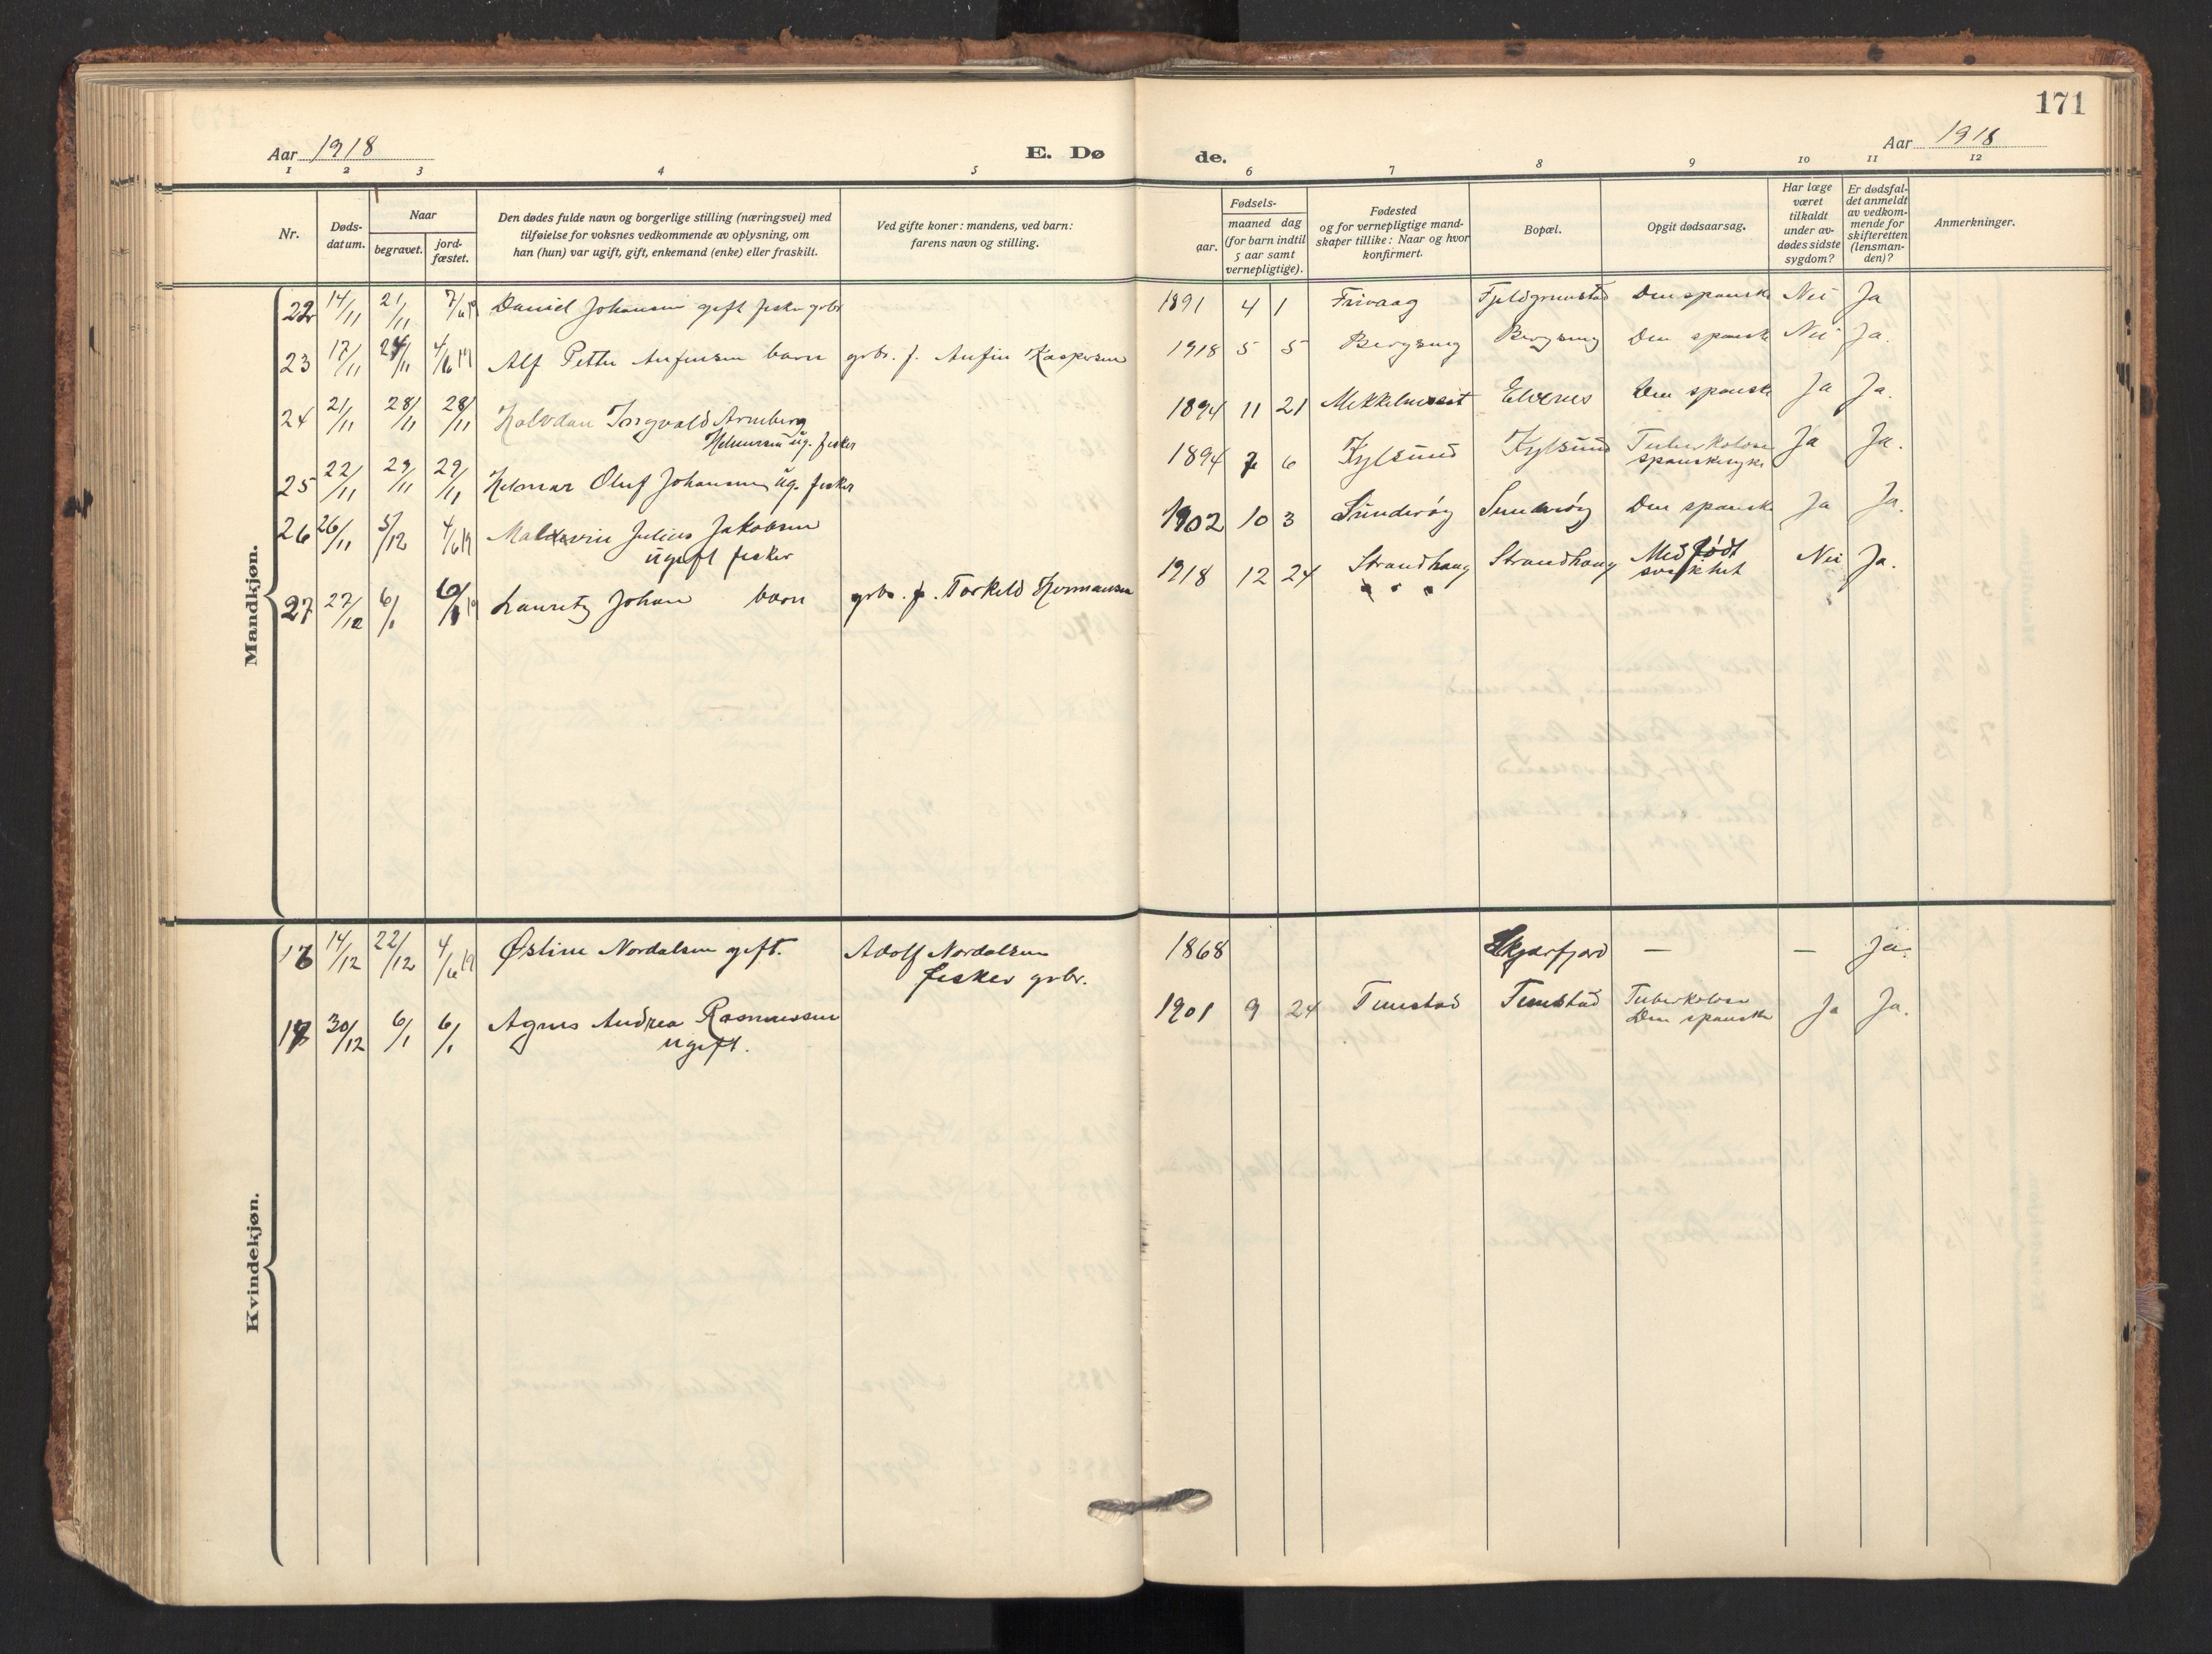 171
Aar 1918
E. Dø
de.
Aar 1918
1 2 3 4 5 6 7 8 9 10 11 12
Nr.
Døds-
datum.
Naar
begravet.
jord-
fæstet.
Den dødes fulde navn og borgerlige stilling (næringsvei) med
tilføielse for voksnes vedkommende av oplysning, om
han (hun) var ugift, gift, enkemand (enke) eller fraskilt.
Ved gifte koner: mandens, ved barn:
farens navn og stilling.
Fødsels-
aar.
maaned dag
(for barn indtil
5 aar samt
vernepligtige).
Fødested
og for vernepligtige mand-
skaper tillike: Naar og hvor
konfirmert.
Bopæl.
Opgit dødsaarsag.
Har læge
været
tilkaldt
under av-
dødes sidste
sygdom?
Er dødsfal-
det anmeldt
av vedkom-
mende for
skifteretten
(lensman-
den)?
Anmerkninger.
Mandkjøn.
22 14/11 21/11 7/6 19 Daniel Johansen gift fisker grbr 1891 4 1 Frivaag Den spanske Nei Ja
23 17/11 24/11 4/6 19 Alf Petter Anfinsen barn grbr. f. Anfin Kaspersen 1918 5 5 Den spanske Nei Ja.
24 21/11 28/11 28/11 Halvdan Ingvald Arnberg 1894 11 21 Elvenes Den spanske Ja Ja.
Helmersen ug. fisker
25 22/11 29/11 29/11 Helmar Oluf Johansen ug. fisker 1894 7 6 Tuberkolose Ja Ja.
spanskesyke
26 26/11 5/12 4/6 19 Julius Jakobsen 1902 10 3 Sunderøy Sunderøy Den spanske Ja Ja.
ugift fisker
27 27/12 6/1 6/1 19 Lauritz Johan barn grbr. f. Torkeld Hermansen 1918 12 24 Strandhaug Strandhaug Medfødt Nei Ja.
svakhet
Kvindekjøn.
16 14/12 22/12 4/6 19 Østine Nordalsen gift. Adolf Nordalsen 1868 Skjærfjord — — Ja.
fisker grbr.
17 30/12 6/1 6/1 Agnes Andrea Rasmussen 1901 9 24 Tunstad Tunstad Tuberkolose Ja Ja.
Den spanske
ugift.